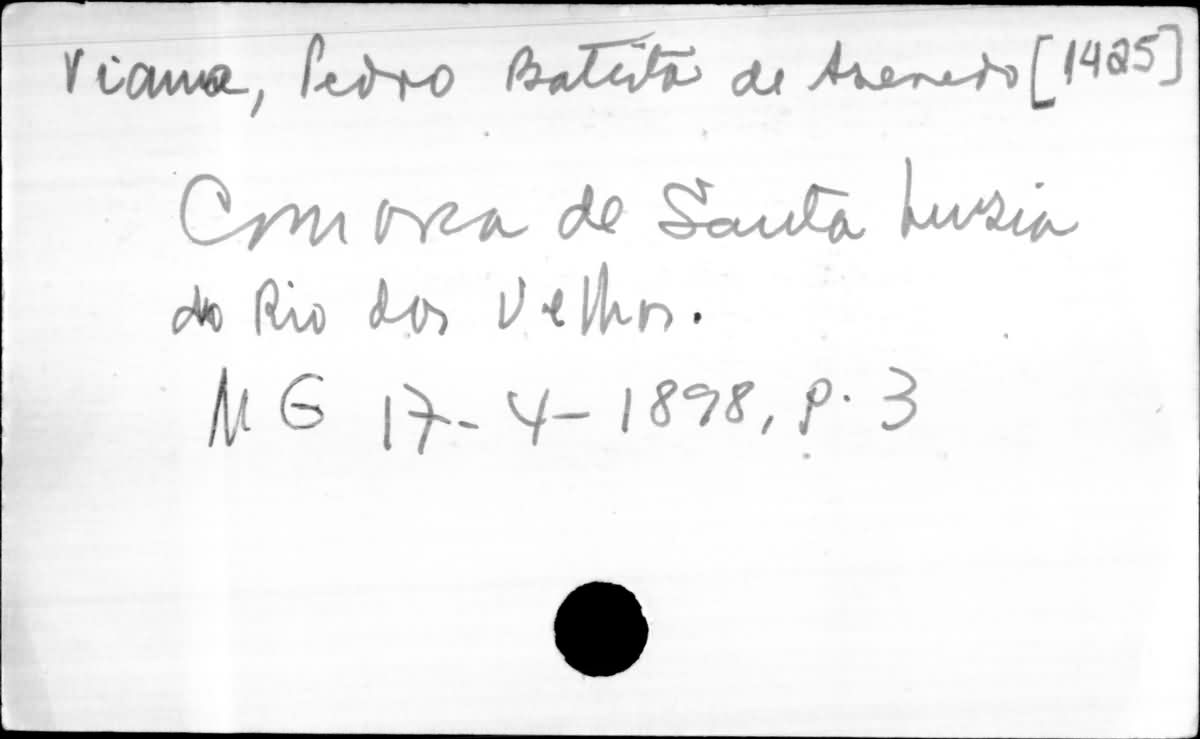 Viana, Pedro Batista de Azevedo [1425]
Comarca de Santa Luzia
do Rio das Velhas.
MG 17-4-1898, p. 3